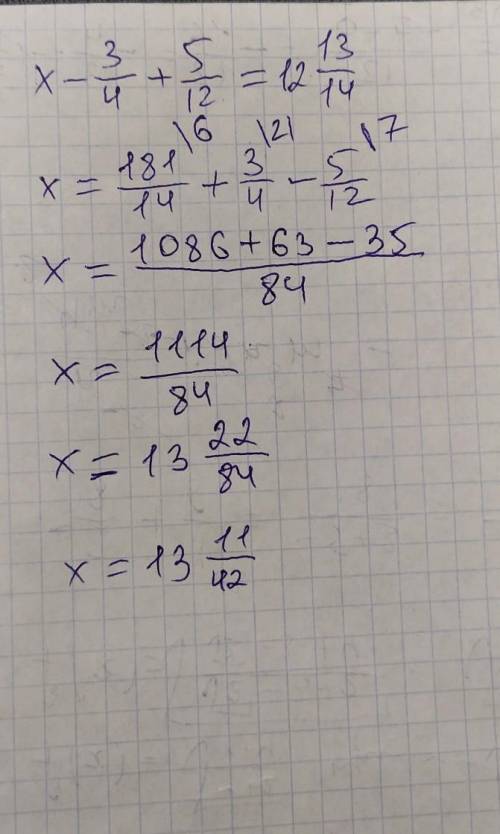 x - 3/4 + 5/12 = 12 13/14
x = 181/14 \6 + 3/4 \21 - 5/12 \7
x = (1086 + 63 - 35)/84
x = 1114/84
x = 13 22/84
x = 13 11/42